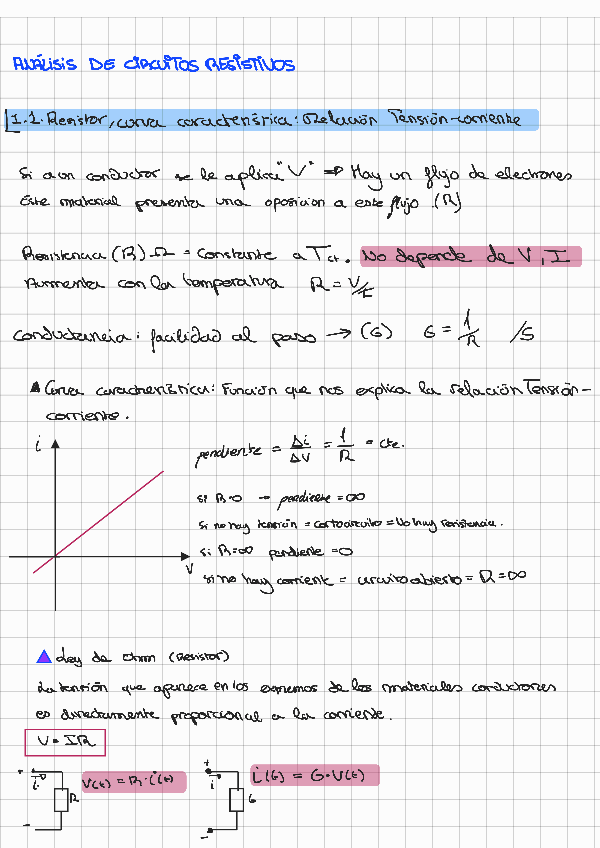 ANÁLISIS DE CIRCUITOS RESISTIVOS
1.1. Resistor, curva característica: Relación Tensión-corriente
Si a un conductor se le aplica "V" ⇒ Hay un flujo de electrones
Este material presenta una oposicion a este flujo. (R)
Resistencia (R) Ω = constante a T cte. No depende de V, I
Aumenta con la temperatura R = V/I
Conductancia: facilidad al paso → (G) G = 1/R /S
Curva característica: Función que nos explica la relación Tensión-
corriente.
i
V
pendiente = Δi/ΔV = 1/R = cte.
si R=0 → pendiente = ∞
Si no hay tensión = cortocircuito = No hay resistencia.
si R=∞ pendiente = 0
si no hay corriente = circuito abierto = R = ∞
Ley de Ohm (Resistor)
La tensión que aparece en los extremos de los materiales conductores
es directamente proporcional a la corriente.
V = IR
+ i R - V(t) = R·i(t)
+ i G - i(t) = G·V(t)